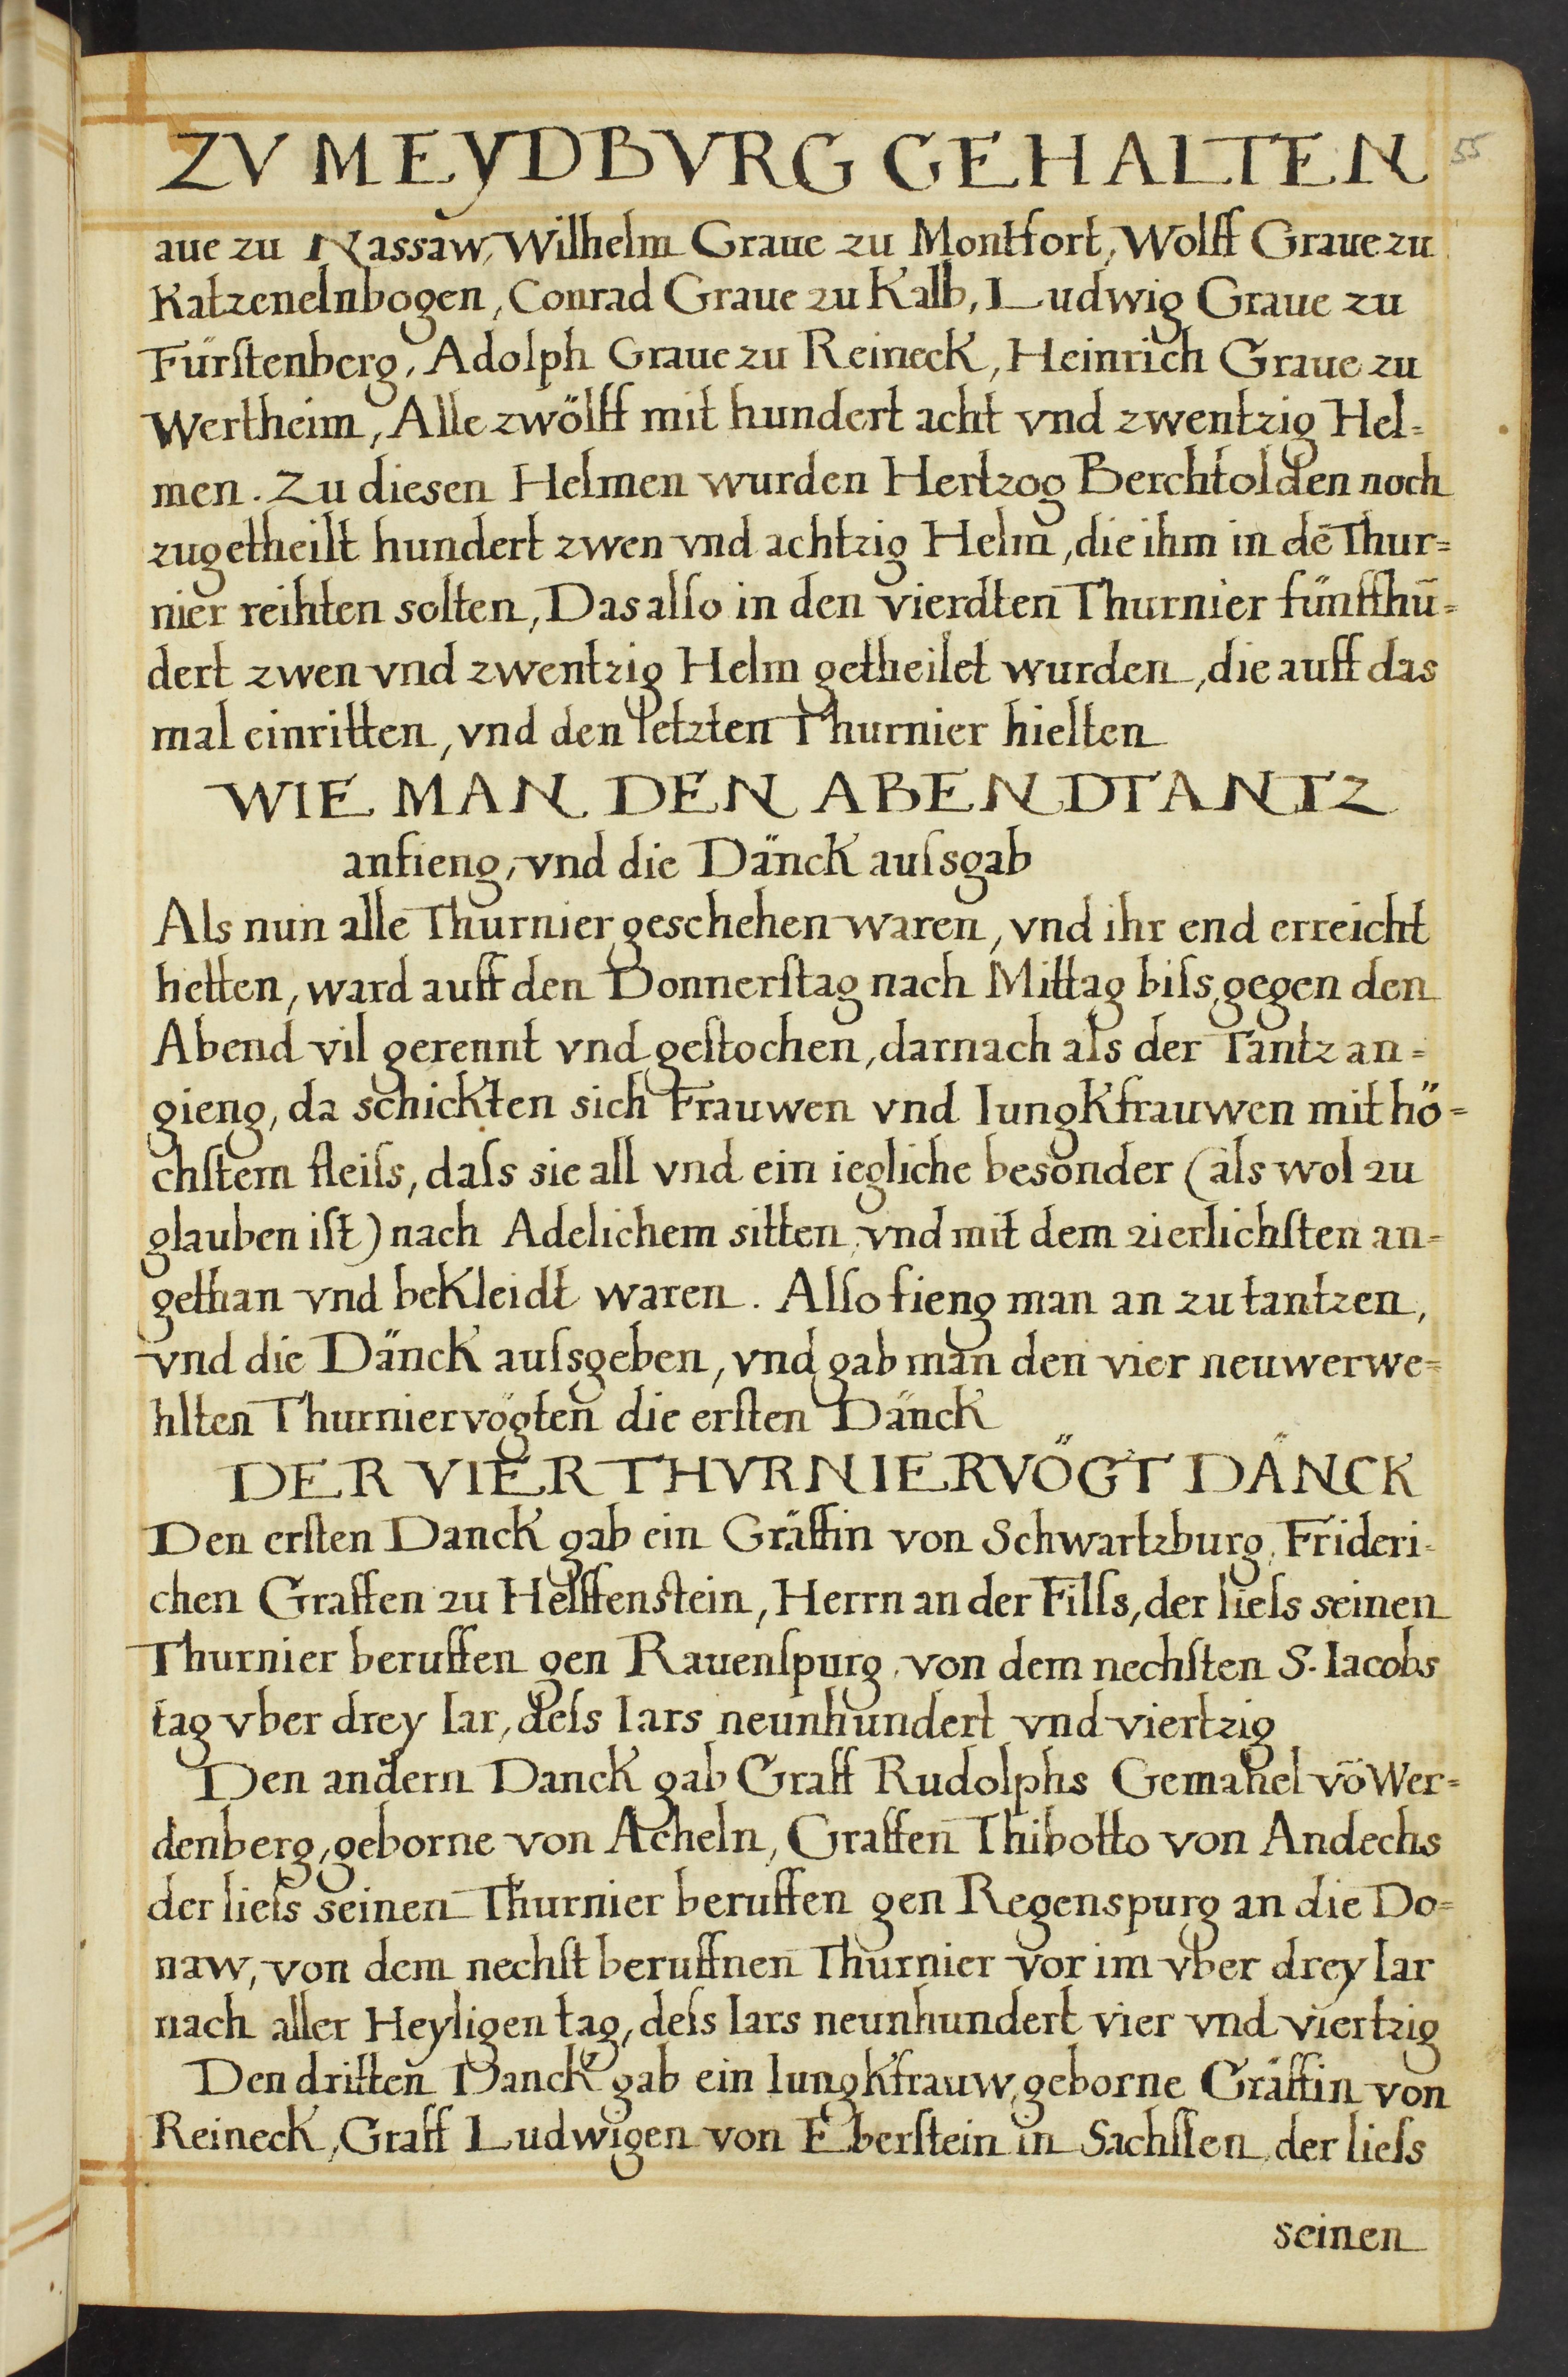 ZV MEYDBVRG GEHALTEN
55
aue zu Nassaw, Wilhelm Graue zu Montfort, Wolff Graue zu
Katzenelnbogen, Conrad Graue zu Kalb, Ludwig Graue zu
Fürſtenberg, Adolph Graue zu Reineck, Heinrich Graue zu
Wertheim, Alle zwölff mit hundert acht vnd zwentzig Hel=
men. Zu diesen Helmen wurden Hertzog Berchtolden noch
zugetheilt hundert zwen vnd achtzig Helm, die ihm in dē Thur=
nier reihten solten, Das alſo in den vierdten Thurnier fünffhū=
dert zwen vnd zwentzig Helm getheilet wurden, die auff das
mal einritten, vnd den letzten Thurnier hielten
WIE MAN DEN ABENDTANTZ
anfieng, vnd die Dänck auſsgab
Als nun alle Thurnier geschehen waren, vnd ihr end erreicht
hetten, ward auff den Donnerſtag nach Mittag biſs gegen den
Abend vil gerennt vnd geſtochen, darnach als der Tantz an=
gieng, da schickten sich Frauwen vnd Iungkfrauwen mit hö=
chſtem fleiſs, daſs sie all vnd ein iegliche besonder (als wol zu
glauben iſt) nach Adelichem sitten, vnd mit dem zierlichſten an=
gethan vnd bekleidt waren. Alſo fieng man an zu tantzen,
vnd die Dänck auſsgeben, vnd gab man den vier neuwerwe=
hlten Thurniervögten die erſten Dänck
DER VIER THVRNIERVÖGT DÄNCK
Den erſten Danck gab ein Gräffin von Schwartzburg, Frideri=
chen Graffen zu Helffenſtein, Herrn an der Fillſs, der lieſs seinen
Thurnier beruffen gen Rauenſpurg, von dem nechſten S. Iacobs
tag vber drey Iar, deſs Iars neunhundert vnd viertzig
Den andern Danck gab Graff Rudolphs Gemahel vō Wer=
denberg, geborne von Acheln, Graffen Thibotto von Andechs
der lieſs seinen Thurnier beruffen gen Regenspurg an die Do=
naw, von dem nechſt beruffnen Thurnier vor im vber drey Iar
nach aller Heyligen tag, deſs Iars neunhundert vier vnd viertzig
Den dritten Danck gab ein Iungkfrauw, geborne Gräffin von
Reineck, Graff Ludwigen von Eberſtein in Sachſſen, der lieſs
seinen